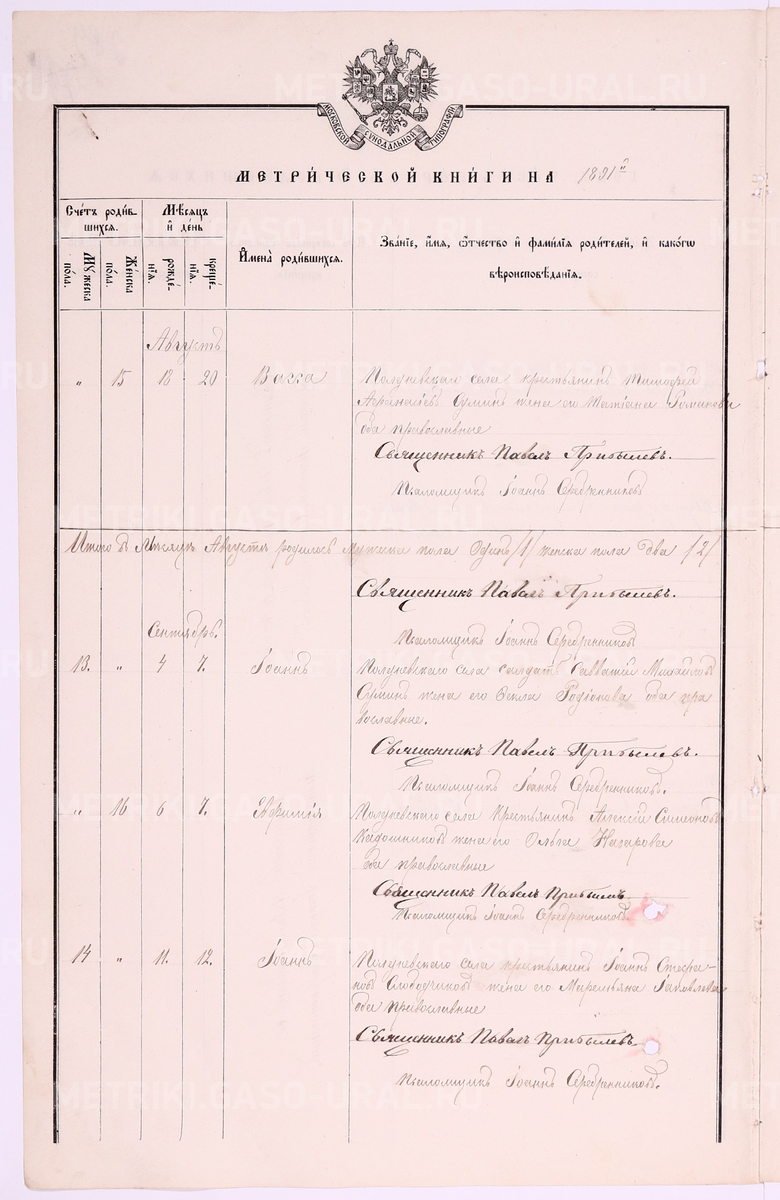 МОСКОВСКОЙ СѴНОДАЛЬНОЙ ТИПОГРАФІИ
МЕТРИ́ЧЕСКОЙ КНИ́ГИ НА 1891й
Сче́тъ роди́в-
шихся.
Мѣ́сяцъ
и҆ де́нь
И҆мена̀ роди́вшихся.
Зва́ніе, и҆́мя, ѻ҆́тчество и҆ фами́лія роди́телей, и҆ како́гѡ
вѣроисповѣ́данія.
Му́жеска
по́ла.
Же́нска
по́ла.
рожде́-
нія.
креще́-
нія.
Августъ
„ 15 18 20 Васса Полдневскаго села крестьянинъ Тимофей
Афанасіевъ Суминъ жена его Татіана
оба православные
Священникъ Павелъ Прибылевъ.
Псаломщикъ Іоаннъ Серебренниковъ
Итого въ Мѣсяцѣ Августѣ родилось Мужска пола Одинъ /1/ женска пола два /2/
Священникъ Павелъ Прибылевъ.
Сентябрь.
Псаломщикъ Іоаннъ Серебренниковъ
13. „ 4 7. Іоаннъ Полдневскаго села солдатъ Савватій Михайловъ
Суминъ жена его Ѳекла Родіонова оба пра
вославные.
Священникъ Павелъ Прибылевъ.
Псаломщикъ Іоаннъ Серебренниковъ.
„ 16 6 7. Полдневскаго села Крестьянинъ Алексій Симеоновъ
жена его Ольга Назарова
оба православные
Священникъ Павелъ Прибылевъ
Псаломщикъ Іоаннъ Серебренниковъ.
14 „ 11. 12. Іоаннъ Полдневскаго села крестьянинъ Іоаннъ Стефа-
новъ Слободчиковъ жена его Маремьяна Іаковлева
оба православные
Священникъ Павелъ Прибылевъ
Псаломщикъ Іоаннъ Серебренниковъ.
METRIKI.GASO-URAL.RU